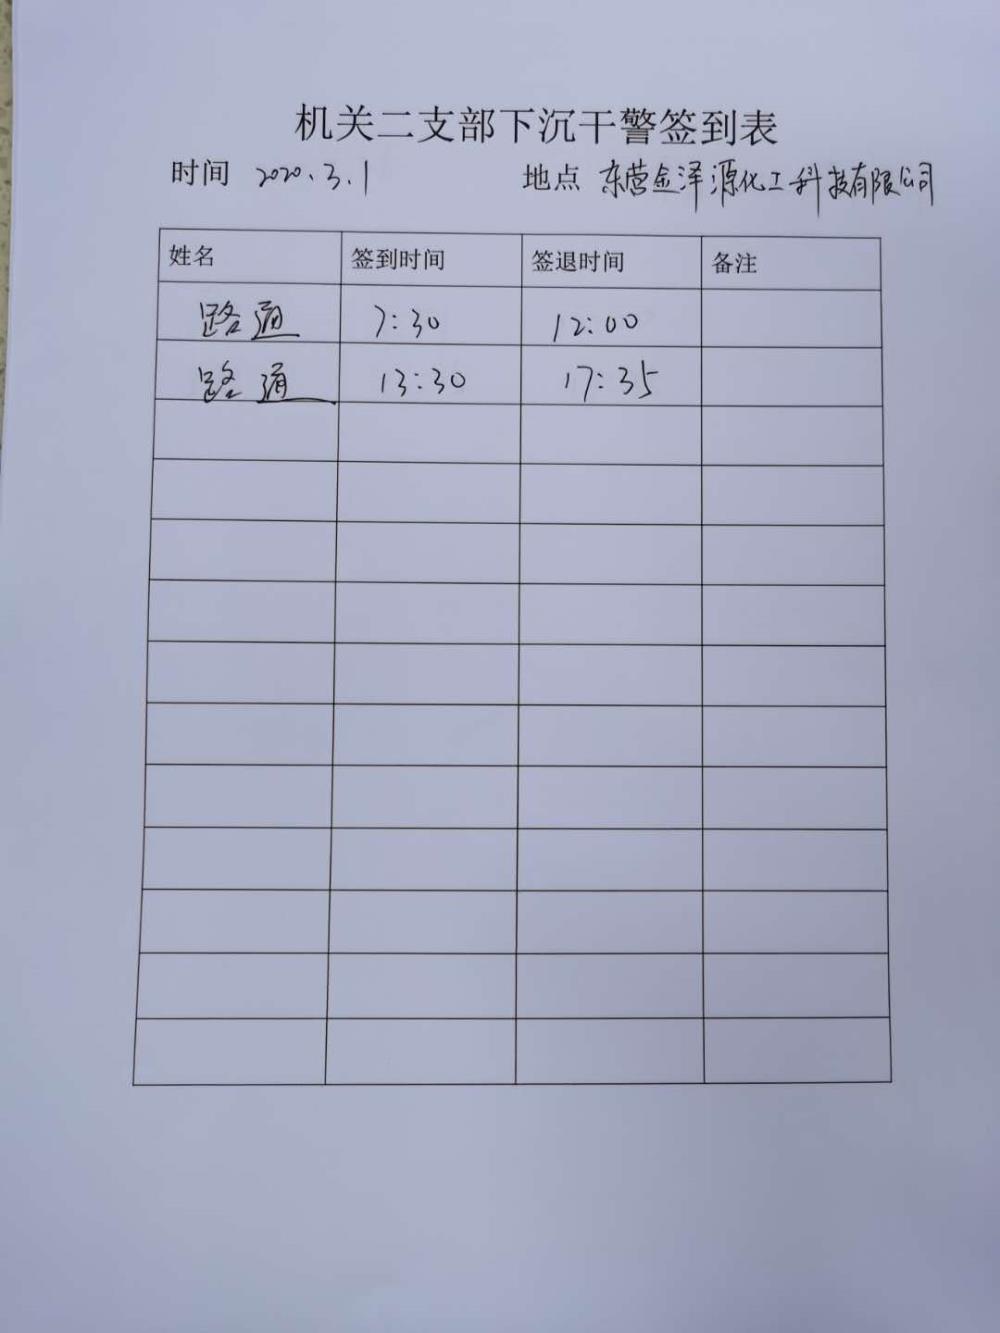 机关二支部下沉干警签到表
时间 2020.3.1 地点 东营金泽源化工科技有限公司
姓名 签到时间 签退时间 备注
路通 7:30 12:00
路通 13:30 17:35